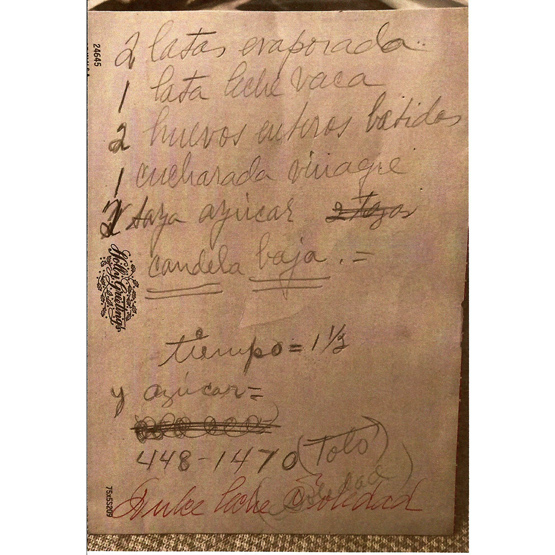 24645
2 latas evaporada
1 lata leche vaca
2 huevos enteros batidos
1 cucharada vinagre
2 taza azúcar 2 Tazas
candela baja.=
Holly Greetings
tiempo = 1 1/3
y azúcar =
448-1470 (Toto)
Dulce leche Soledad
75x5S209